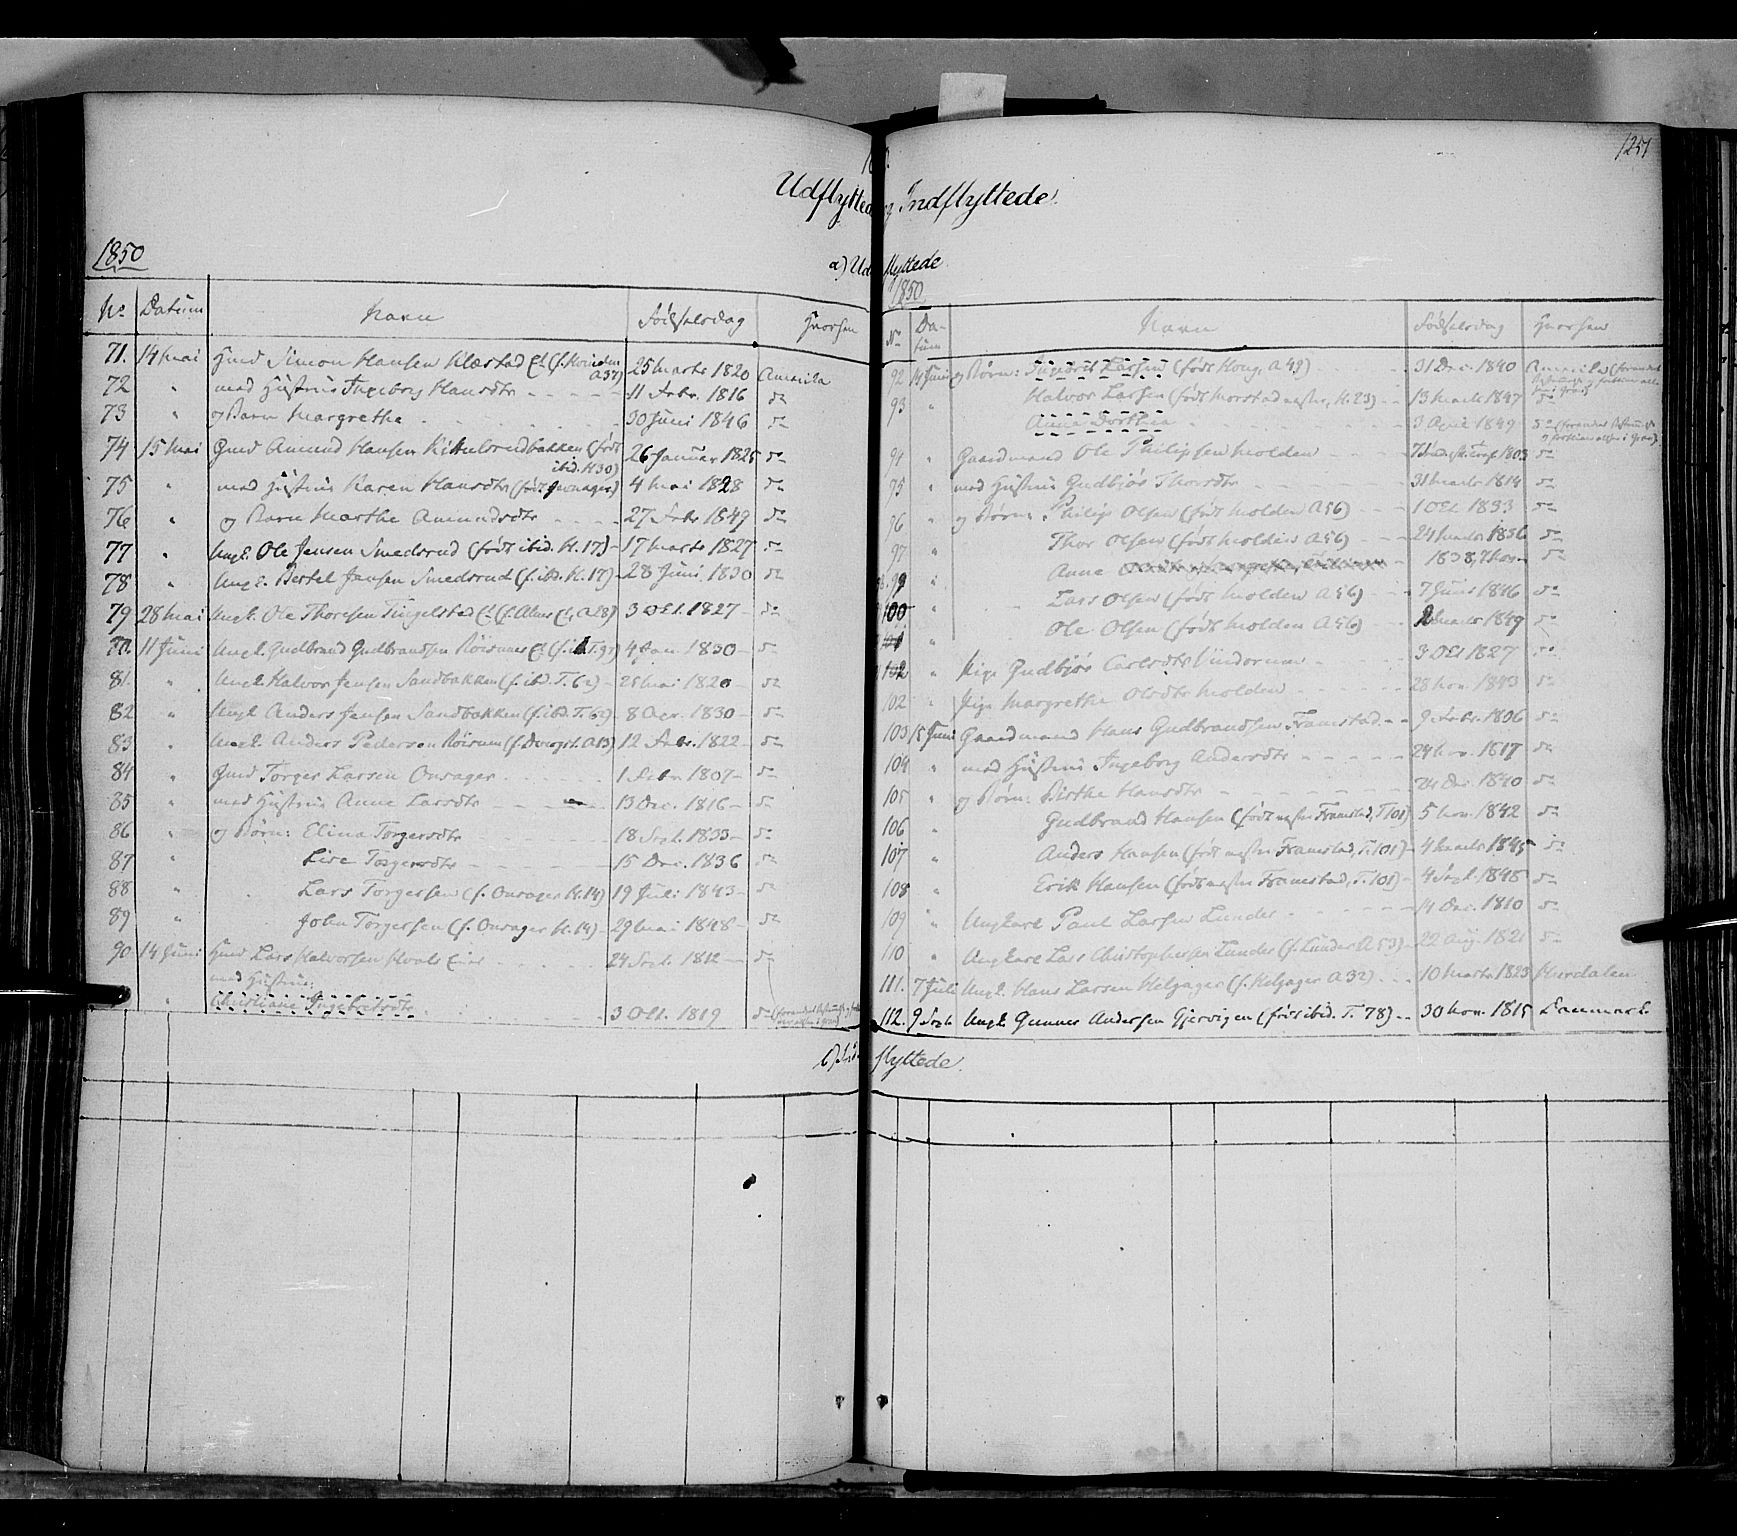 1251
Udflyttede og Indflyttede.
1850
a) Udflyttede
No Datum Navn Fødselsdag Hvorhen
71. 14 Mai Hmd Simon Hansen Klæstad Ei (f. A37) 25 Marts 1820 Amerika
72 " med Hustrue Ingeborg Hansdtr 11 Febr. 1816 do
73 " og Barn Margrethe 30 Juni 1846 do
74 15 Mai Gmd Amund Hansen (født ibid. H30) 26 Januar 1825 do
75 " med Hustrue Karen Hansdtr (født Jevnager) 4 Mai 1828 do
76 " og Barn Marthe Amundsdtr 27 Febr 1849 do
77 " Ungk. Ole Jensen Smedsrud (født ibid. H.17) 17 Marts 1827 do
78 " Ungk. Bertel Jensen Smedsrud (f. ibid. H.17) 28 Juni 1830 do
79 28 Mai Ungk. Ole Thoresen Tingelstad Ei (f. Alm Ei, A28) 3 Oct. 1827 do
11 Juni Ungk. Gudbrand Gudbrandsen Røisum Ei (f. ib T.97) 4 Jan. 1830 do
81. " Ungk. Halvor Jensen Sandbakken (f. ibid. T.62) 28 Mai 1820 do
82 " Ungk Anders Jensen Sandbakken (f. ibid. T.69) 8 Apr. 1830 do
83 " Ungk. Anders Pedersen Røisum (f. A13) 12 Febr. 1822 do
84 " Gmd Torger Larsen Onsager 1 Febr 1807 do
85 " med Hustrue Anne Larsdtr 13 Dec. 1816 do
86 " og Børn: Elina Torgersdtr 18 Sept. 1833 do
87 " Lise Torgersdtr 15 Dec. 1836 do
88 " Lars Torgersen (f. Onsager H.14) 19 Juli 1843 do
89 " John Torgersen (f. Onsager H.14) 29 Mai 1848 do
90 14 Juni Hmd Lars Halvorsen Hvale Eier 24 Sept. 1812 do
med Hustrue:
" Christiane Ingebretsdtr 3 Oct. 1819 do
1850
No Datum Navn Fødselsdag Hvorhen
92 14 Juni og Børn: Ingebret Larsen (født Houg, A49) 31 Dec. 1840 Amerika
93 " Halvor Larsen (født Morstad H.23) 13 Marts 1847 do
Anna Dorthea 3 April 1849 do
94 " Gaardmand Ole Philipsen Molden 1803 do
95 " med Hustrue Gudbjør Thorsdtr 31 Marts 1814 do
96 " og Børn: Philip Olsen (født Molden A56) 1 Oct. 1833 do
97 " Thor Olsen (født Molden A56) 24 Marts 1836 do
99 " Anne 1838, 7 Nov. do
100 " Lars Olsen (født Molden A56) 7 Juni 1846 do
" Ole Olsen (født Molden A56) Marts 1849 do
102 " Pige Gudbjør Carlsdtr 3 Oct 1827 do
102 " Pige Margrethe Olsdtr Molden 28 Nov. 1843 do
103 15 Juni Gaardmand Hans Gudbrandsen Framstad 9 Febr. 1806 do
104 " med Hustrue Ingeborg Andersdtr 24 Nov. 1817 do
105 " og Børn: Birthe Hansdtr 24 Dec. 1840 do
106 " Gudbrand Hansen (født Framstad, T.101) 5 Nov. 1842 do
107 " Anders Hansen (født Framstad, T.101) 4 Marts 1845 do
108 " Erik Hansen (født Framstad, T.101) 4 Sept. 1848 do
109 " Ungkarl Paul Larsen Lunder 14 Dec. 1810 do
110 " Ungkarl Lars Christophersen Lunder (f. Lunder A53) 22 Aug. 1821 do
111. 7 Juli Ungk. Hans Larsen Helgager (f. Helgager A32) 10 Marts 1823 Hurdalen
112. 9 Sept. Ungk. Gunner Andersen Gjervigen (født ibid. T. 78) 30 Nov. 1815 Danmark
flyttede.